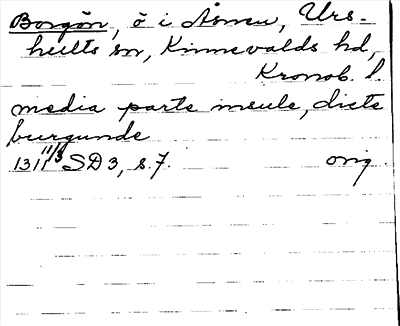 Borgön, ö i Åsnen, Urs-
hults sn, Kinnevalds hd,
Kronob. l.
media parte insule, dicte
burgunde
1311 11/3 SD3, s. 7. orig